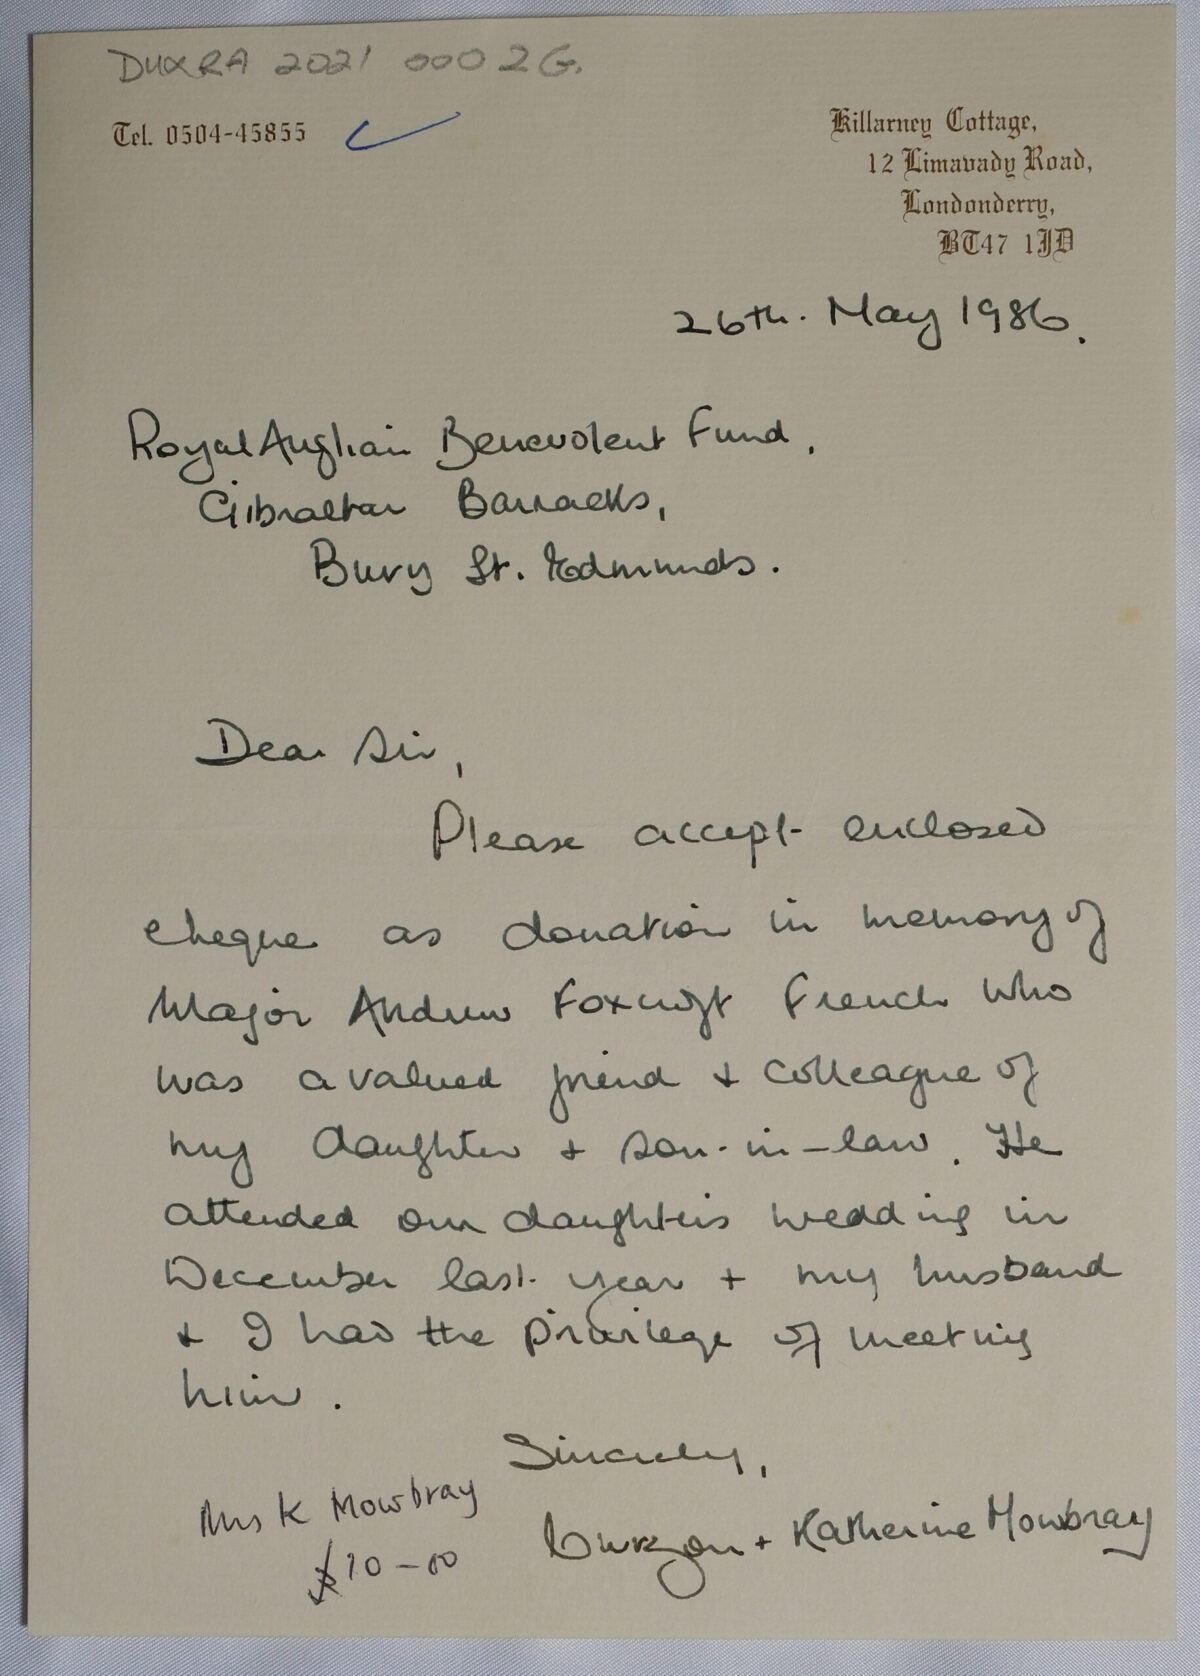 DUXRA 2021 0002G.
Tel. 0504-45855
Killarney Cottage,
12 Limavady Road,
Londonderry,
BT47 1JD
26th. May 1986.
Royal Anglian Benevolent Fund,
Gibraltar Barracks,
Bury St. Edmunds.
Dear Sir,
Please accept enclosed
cheque as donation in memory of
Major Andrew Foxcroft French who
was a valued friend & colleague of
my daughter & son-in-law. He
attended our daughter's wedding in
December last year + my husband
& I had the privilege of meeting
him.
Sincerely,
Curzon + Katherine Mowbray
Mrs K Mowbray
£10-00